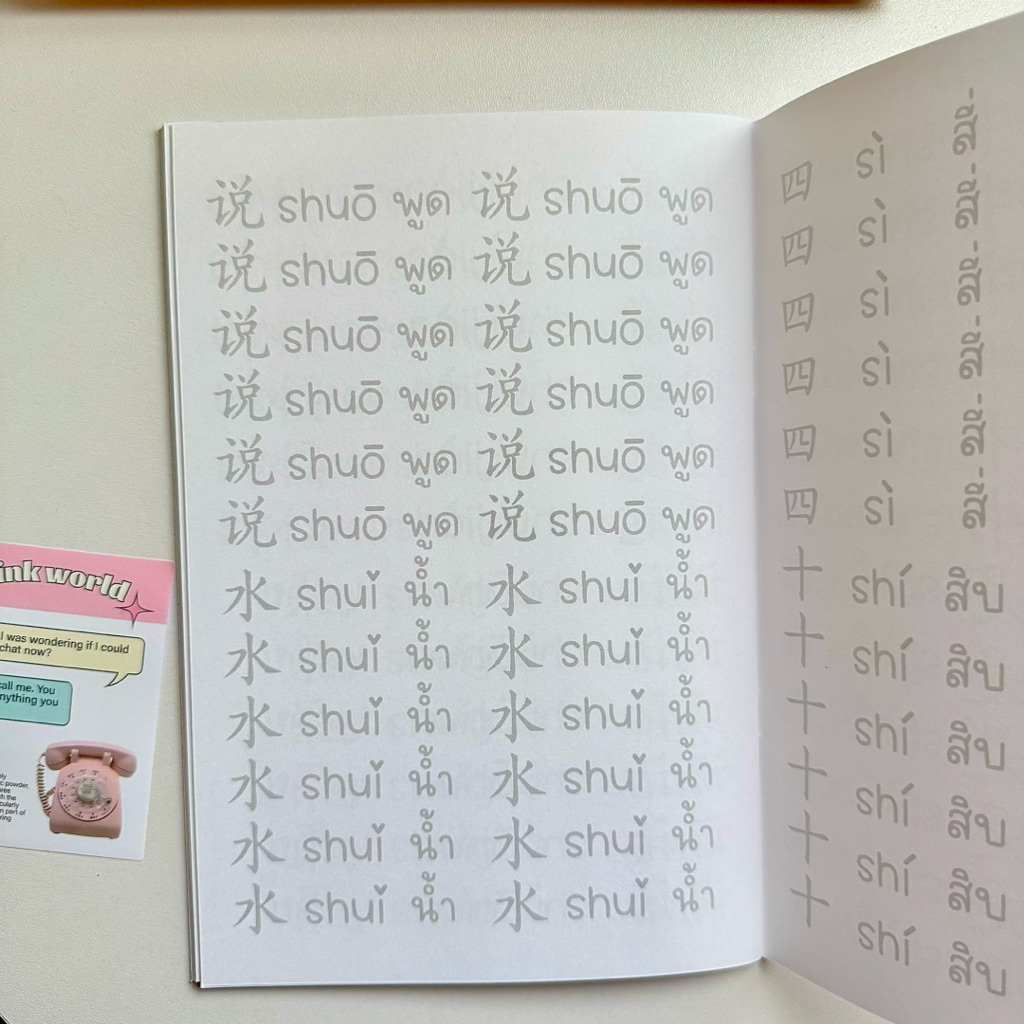 说 shuō พูด 说 shuō พูด
说 shuō พูด 说 shuō พูด
说 shuō พูด 说 shuō พูด
说 shuō พูด 说 shuō พูด
说 shuō พูด 说 shuō พูด
说 shuō พูด 说 shuō พูด
水 shuǐ น้ำ 水 shuǐ น้ำ
水 shuǐ น้ำ 水 shuǐ น้ำ
水 shuǐ น้ำ 水 shuǐ น้ำ
水 shuǐ น้ำ 水 shuǐ น้ำ
水 shuǐ น้ำ 水 shuǐ น้ำ
水 shuǐ น้ำ 水 shuǐ น้ำ
四 sì สี่
四 sì สี่
四 sì สี่
四 sì สี่
四 sì สี่
四 sì สี่
十 shí สิบ
十 shí สิบ
十 shí สิบ
十 shí สิบ
十 shí สิบ
十 shí สิบ
ink world
I was wondering if I could
chat now?
call me. You
nything you
powder,
with the
cularly
part of